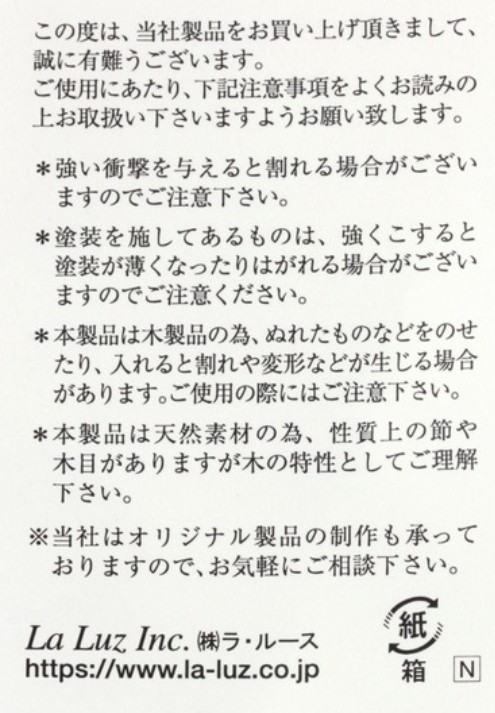 この度は、当社製品をお買い上げ頂きまして、
誠に有難うございます。
ご使用にあたり、下記注意事項をよくお読みの
上お取扱い下さいますようお願い致します。
＊強い衝撃を与えると割れる場合がござい
ますのでご注意下さい。
＊塗装を施してあるものは、強くこすると
塗装が薄くなったりはがれる場合がござい
ますのでご注意ください。
＊本製品は木製品の為、ぬれたものなどをのせ
たり、入れると割れや変形などが生じる場合
があります。ご使用の際にはご注意下さい。
＊本製品は天然素材の為、性質上の節や
木目がありますが木の特性としてご理解
下さい。
※当社はオリジナル製品の制作も承って
おりますので、お気軽にご相談下さい。
La Luz Inc. ㈱ラ・ルース
https://www.la-luz.co.jp
紙
箱
N